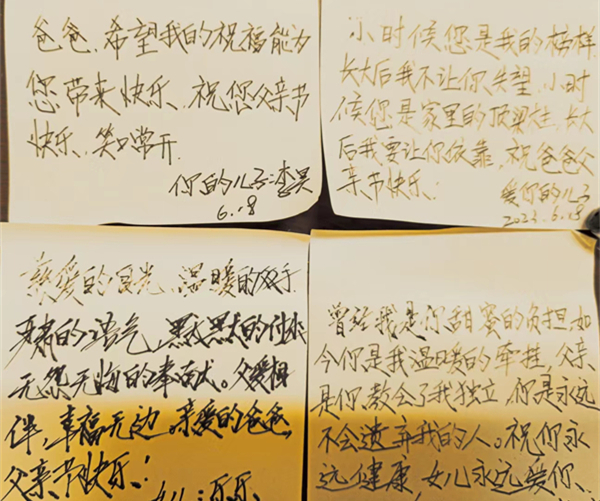 爸爸,希望我的祝福能为
您带来快乐、祝您父亲节
快乐、笑口常开
你的儿子:李昊
6.18
小时候您是我的榜样
长大后我不让你失望.小时
候您是家里的顶梁柱.长大
后我要让你依靠,祝爸爸父
亲节快乐:
爱你的儿子
2023.6.18
慈爱的目光、温暖的双手
的语气,默默的付出
无怨无悔的奉献。父爱相
伴,幸福无边.亲爱的爸爸,
父亲节快乐!
女儿:乐乐
曾经我是你甜蜜的负担.如
今你是我温暖的牵挂,父亲
是你教会了我独立,你是永远
不会遗弃我的人。祝你永
远健康,女儿永远爱你、